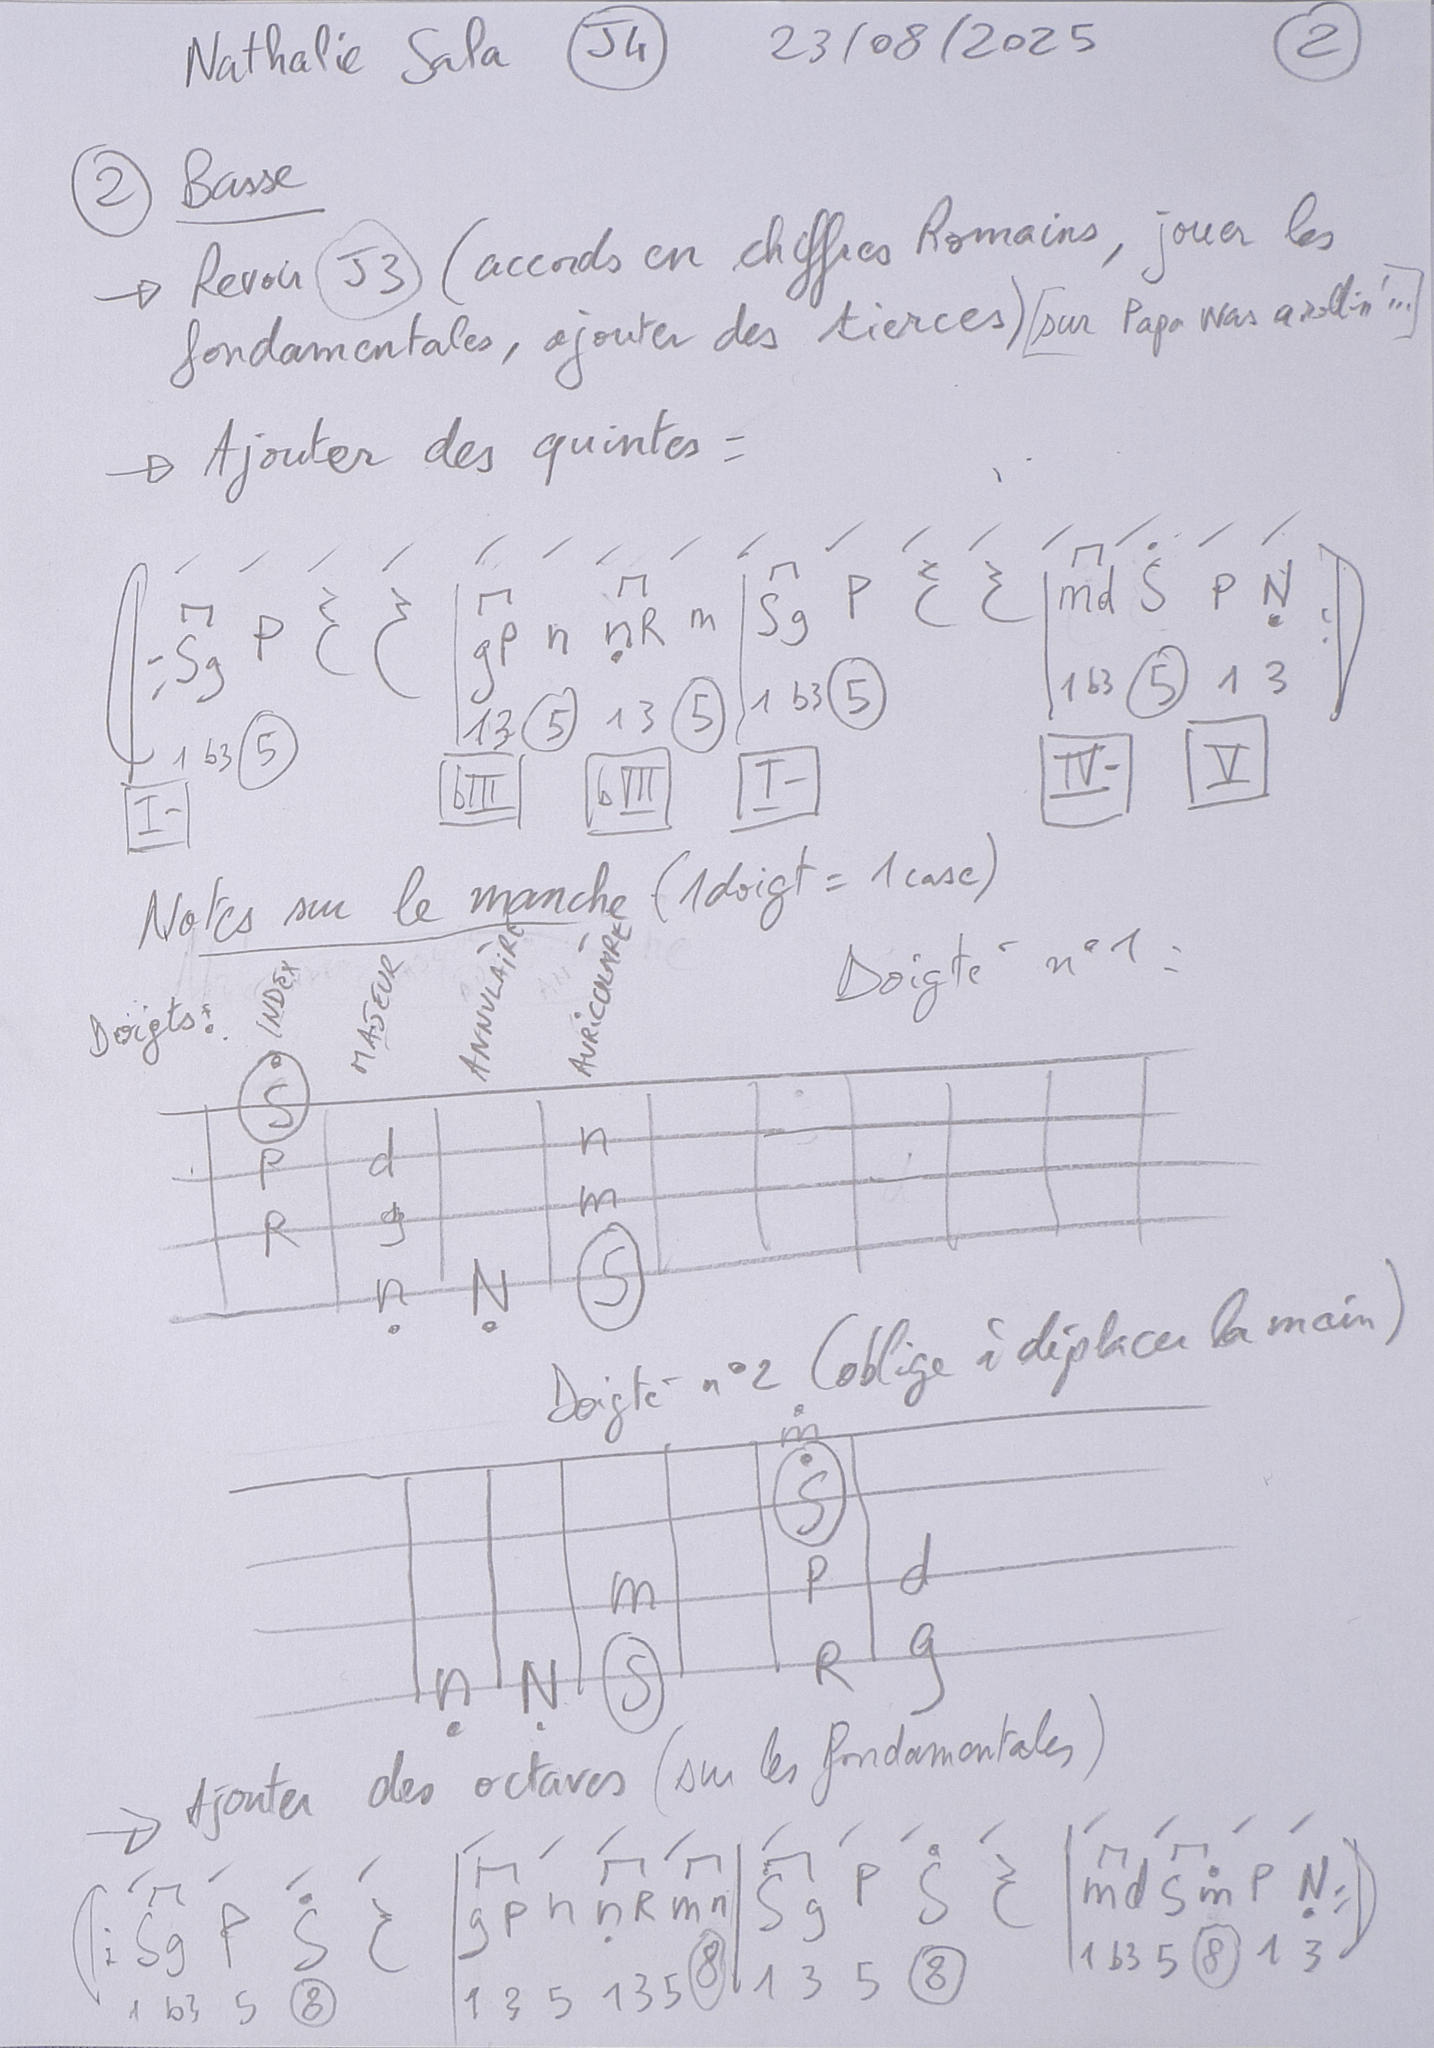 Nathalie Sala J4 23/08/2025 2
2 Basse
→ Revoir J3 (accords en chiffres Romains, jouer les
fondamentales, ajouter des tierces) [sur Papa was a rollin'...]
→ Ajouter des quintes =
Sg P | gP n nR m | Sg P | md Ṡ P Ṇ
1 b3 5 | 1 3 5 1 3 5 | 1 b3 5 | 1 b3 5 1 3
I- bIII bVII I- IV- V
Notes sur le manche (1 doigt = 1 case)
Doigté n°1 :
Doigts : INDEX MAJEUR ANNULAIRE AURICULAIRE
Ṡ
P d n
R g m
ṇ Ṇ S
Doigté n°2 (oblige à déplacer la main)
ṁ
Ṡ
m P d
ṇ Ṇ S R g
→ Ajouter des octaves (sur les fondamentales)
Sg P Ṡ | gP n ṇR mn | Sg P Ṡ | md Sṁ P Ṇ
1 b3 5 8 | 1 3 5 1 3 5 8 | 1 3 5 8 | 1 b3 5 8 1 3